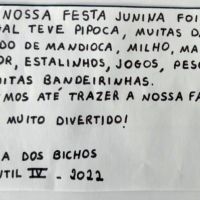 NOSSA FESTA JUNINA FOI
GAL TEVE PIPOCA, MUITAS DA
DO DE MANDIOCA, MILHO, MA
OR, ESTALINHOS, JOGOS, PES
ITAS BANDEIRINHAS.
MOS ATÉ TRAZER A NOSSA FA
MUITO DIVERTIDO!
A DOS BICHOS
NTIL IV - 2022